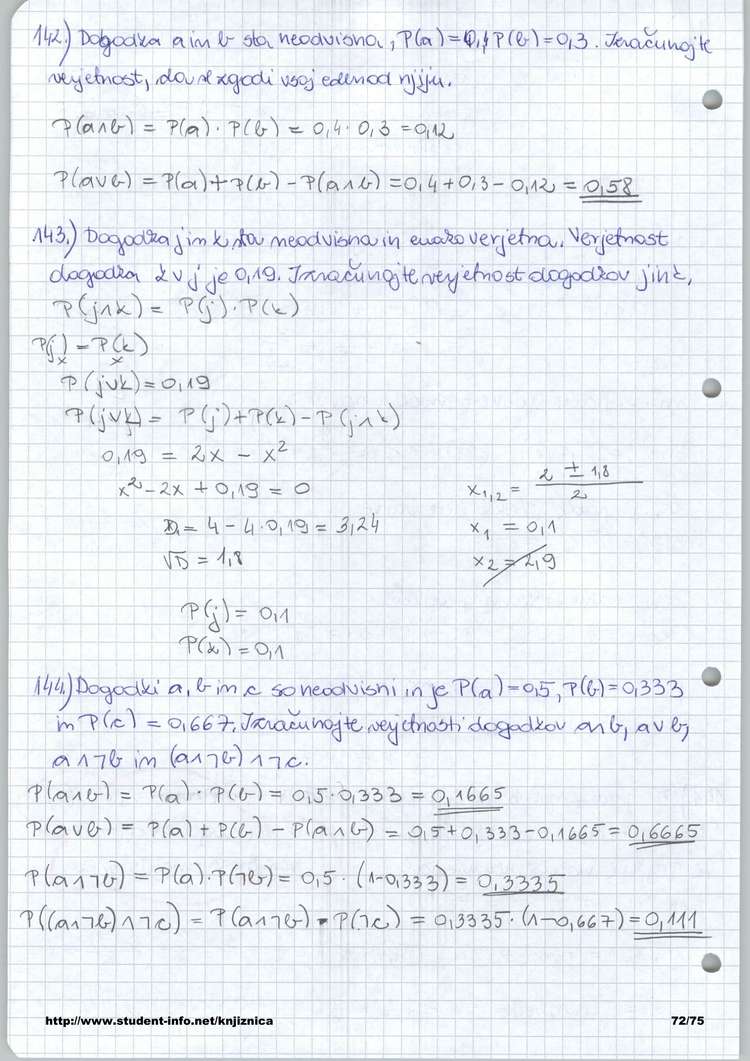 142.) Dogodka a in b sta neodvisna, P(a)=0,4 P(b)=0,3. Izračunajte
verjetnost, da se zgodi vsaj eden od njiju.
P(a∧b) = P(a) · P(b) = 0,4 · 0,3 = 0,12
P(a∨b) = P(a) + P(b) - P(a∧b) = 0,4 + 0,3 - 0,12 = 0,58
143.) Dogodka j in k sta neodvisna in enako verjetna. Verjetnost
dogodka k∨j je 0,19. Izračunajte verjetnost dogodkov j in k.
P(j∧k) = P(j) · P(k)
P(j) = P(k)
x x
P(j∨k) = 0,19
P(j∨k) = P(j) + P(k) - P(j∧k)
0,19 = 2x - x²
x² - 2x + 0,19 = 0
x₁,₂ = (2 ± 1,8) / 2
D = 4 - 4 · 0,19 = 3,24
x₁ = 0,1
√D = 1,8
x₂ = 2,9
P(j) = 0,1
P(k) = 0,1
144.) Dogodki a, b in c so neodvisni in je P(a)=0,5, P(b)=0,333
in P(c) = 0,667. Izračunajte verjetnosti dogodkov a∧b, a∨b,
a∧¬b in (a∧¬b)∧¬c.
P(a∧b) = P(a) · P(b) = 0,5 · 0,333 = 0,1665
P(a∨b) = P(a) + P(b) - P(a∧b) = 0,5 + 0,333 - 0,1665 = 0,6665
P(a∧¬b) = P(a) · P(¬b) = 0,5 · (1-0,333) = 0,3335
P((a∧¬b)∧¬c) = P(a∧¬b) · P(¬c) = 0,3335 · (1-0,667) = 0,111
http://www.student-info.net/knjiznica 72/75